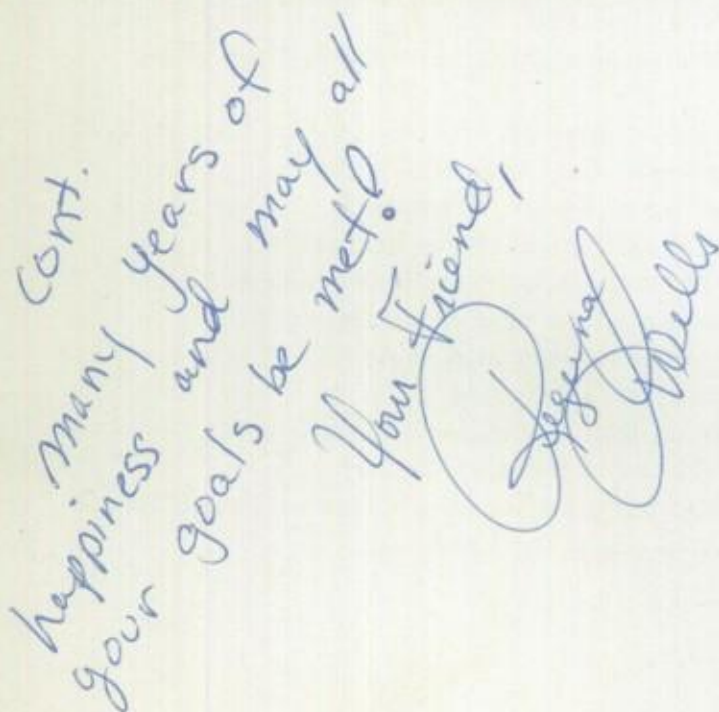 cont.
many years of
happiness and may all
your goals be met!
Your Friend,
Regina